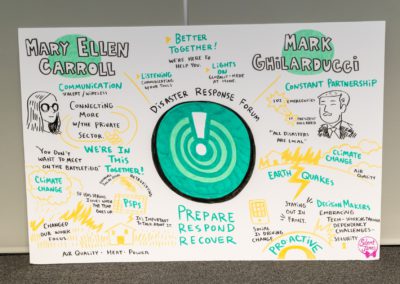 MARY ELLEN
CARROLL
COMMUNICATION
CONNECTING
MORE
W/THE PRIVATE
SECTOR
"YOU DON'T
WANT TO MEET
ON THE BATTLEFIELD"
WE'RE IN
THIS
TOGETHER!
CLIMATE
CHANGE
PSPS
IT'S IMPORTANT
TO TALK ABOUT IT
CHANGED
OUR WORK
FOCUS
AIR QUALITY · HEAT · POWER
BETTER
TOGETHER!
WE'RE HERE TO
HELP YOU.
LISTENING
COMMUNICATING
LIGHTS
ON
DISASTER RESPONSE FORUM
PREPARE
RESPOND
RECOVER
MARK
GHILARDUCCI
CONSTANT PARTNERSHIP
"ALL DISASTERS
ARE LOCAL"
CLIMATE
CHANGE
AIR QUALITY
EARTH QUAKES
STAYING
OUT IN
FRONT.
SOCIAL
IS DRIVING
CHANGE
PRO-ACTIVE
DECISION MAKERS
EMBRACING
TECH
DEPENDENCY
CHALLENGES
SECURITY